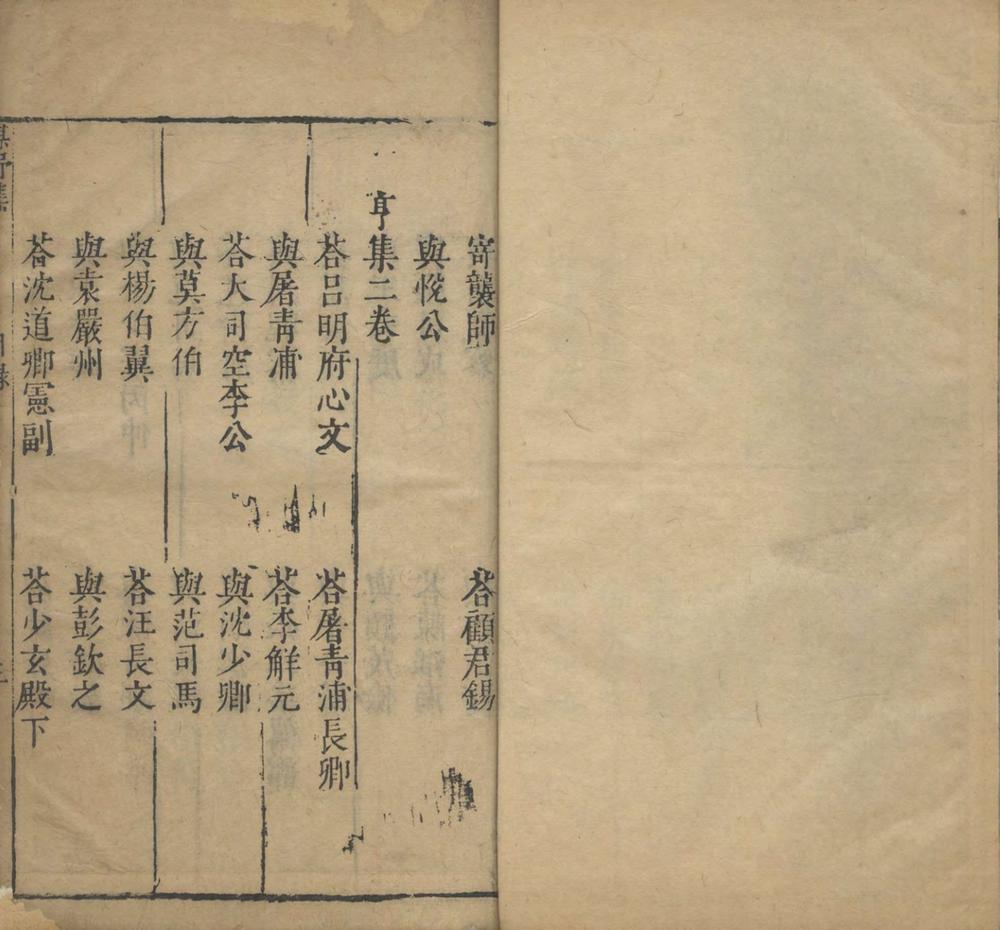 寄襲師　荅顧君錫
與悅公
亨集二卷
荅呂明府心文　荅屠青浦長卿
與屠青浦　荅李解元
荅大司空李公　與沈少卿
與莫方伯　與范司馬
與楊伯翼　荅汪長文
與袁嚴州　與彭欽之
荅沈道卿憲副　荅少玄殿下
目錄